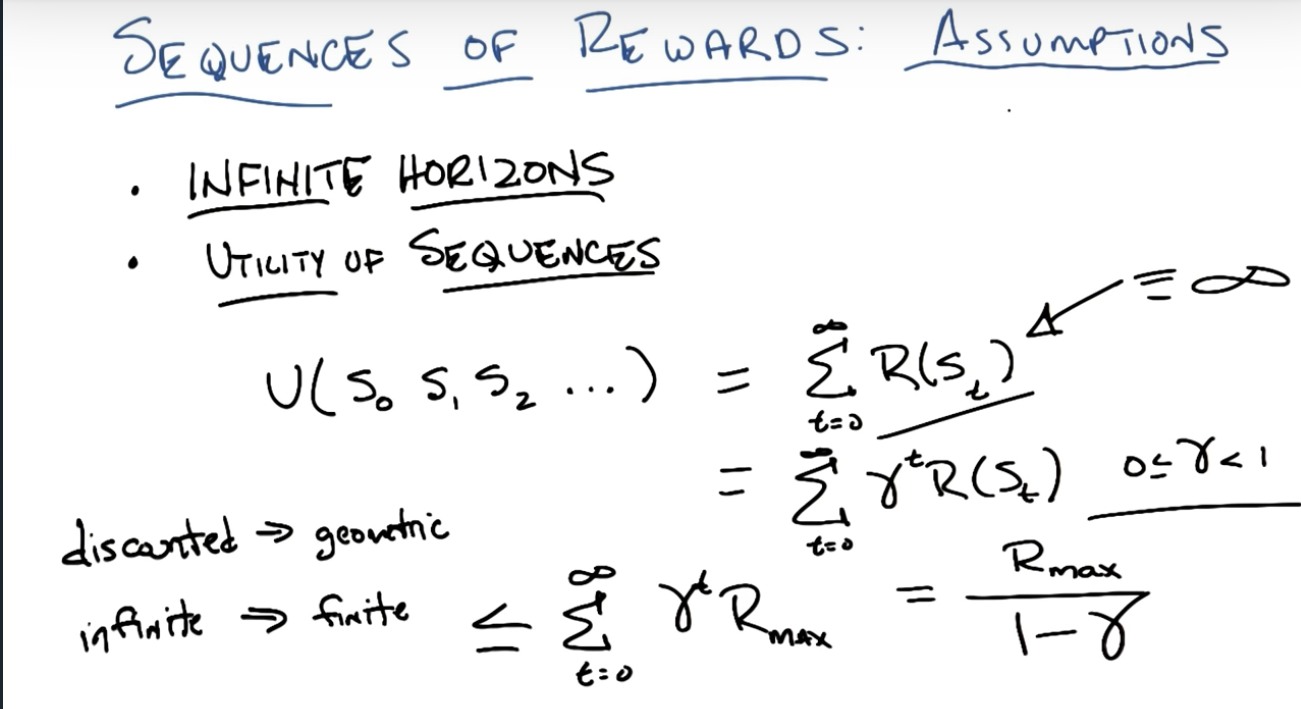 SEQUENCES OF REWARDS: ASSUMPTIONS
• INFINITE HORIZONS
• UTILITY OF SEQUENCES
≡ ∞
U(S₀ S₁ S₂ ...) = ∑_{t=0}^{∞} R(Sₜ)
= ∑_{t=0}^{∞} γᵗR(Sₜ) 0≤γ<1
discounted ⇒ geometric
infinite ⇒ finite ≤ ∑_{t=0}^{∞} γᵗ R_MAX = R_max / (1-γ)